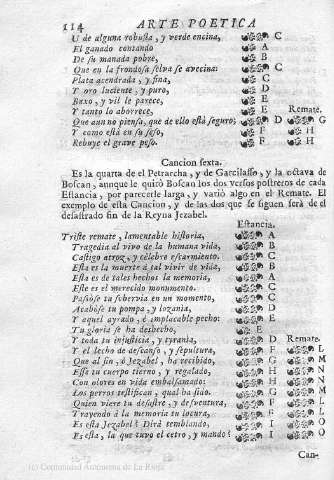 114 ARTE POETICA
U de alguna robusta, y verde encina, C
El ganado contando A
De su manada pobre, B
Que en la frondosa selva se avecina: C
Plata acendrada, y fina, C
Y oro luciente, y puro, D
Baxo, y vil le parece, E
Y tanto lo aborrece, E Remate.
Que aun no piensa, que de ello está seguro; D G
Y como está en su seso, F H
Rehuye el grave peso. F H
Cancion sexta.
Es la quarta de el Petrarcha, y de Garcilasso, y la octava de
Boscan, aunque le quitó Boscan los dos versos postreros de cada
Estancia, por parecerle larga, y varió algo en el Remate. El
exemplo de esta Cancion, y de las dos que se siguen será de el
desastrado fin de la Reyna Jezabel.
Estancia.
Triste remate, lamentable historia, A
Tragedia al vivo de la humana vida, B
Castigo atroz, y célebre escarmiento. C
Esta es la muerte á tal vivir de vida, B
Esta es de tales hechos la memoria, A
Este es el merecido monumento. C
Passóse tu sobervia en un momento, C
Acabóse tu pompa, y lozanía, D
Y aquel ayrado, é implacable pecho: E
Tu gloria se ha deshecho, E
Y toda tu injusticia, y tyrania, D Remate.
Y el lecho de descanso, y sepultura, F L
Que al fin, ó Jezabel, ha recibido, G M
Esse tu cuerpo tierno, y regalado, H N
Con olores en vida embalsamado: H N
Los perros testifican, qual ha sido. G M
Quien viere tu desastre, y desventura, F L
Trayendo á la memoria tu locura, F L
Es esta Jezabel? Dirá temblando, I O
Es esta, la que tuvo el cetro, y mando? I O
Can-
(c) Comunidad Autónoma de La Rioja